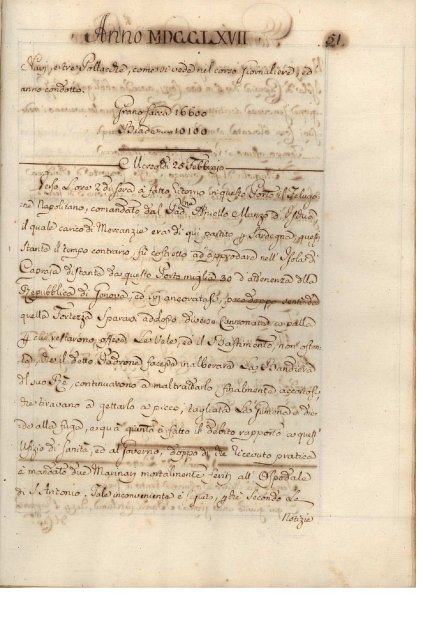 Anno MDCCLXVII
51.
Navi, e tre Pollacche, come si vede nel corso Giornaliere, ed
anno condotto.
Grano sacca 16600
Biade 10100
Mercordi 25 Febbraio
Verso l'ore 2 di sera è fatto ritorno in questo Porto il
Napolitano, comandato dal Pad. Aniello Manzo d'
il quale carico di Mercanzie era di qui partito p Sardegna,
stante il tempo contrario fù costretto ad approdare nell'Isola di
Capraja distante da questo Porto miglia 30 a adenenza della
Repubblica di Genova, ed ivi ancoratosi, poco doppo
quella Fortezza Sparari addosso diverse Cannonate a palla
p che restarono offese Le Vele, ed il Bastimento, non ostan
te, che il detto Padrone facesse inalberare La Bandiera
del suo Rè, continuarono a maltrattarlo finalmente accortosi,
che tiravano a gettarlo a picco, tagliata La Gumona si die
de alla fuga, e quà giunto è fatto il debito rapporto a quest'
Ufizio di Sanità, ed al Governo, doppo di che ricevuto pratica
è mandato due Marinari mortalmente feriti all'Ospedale
di S. Antonio, Tale inconveniente è seguito, Secondo Le
Notizie